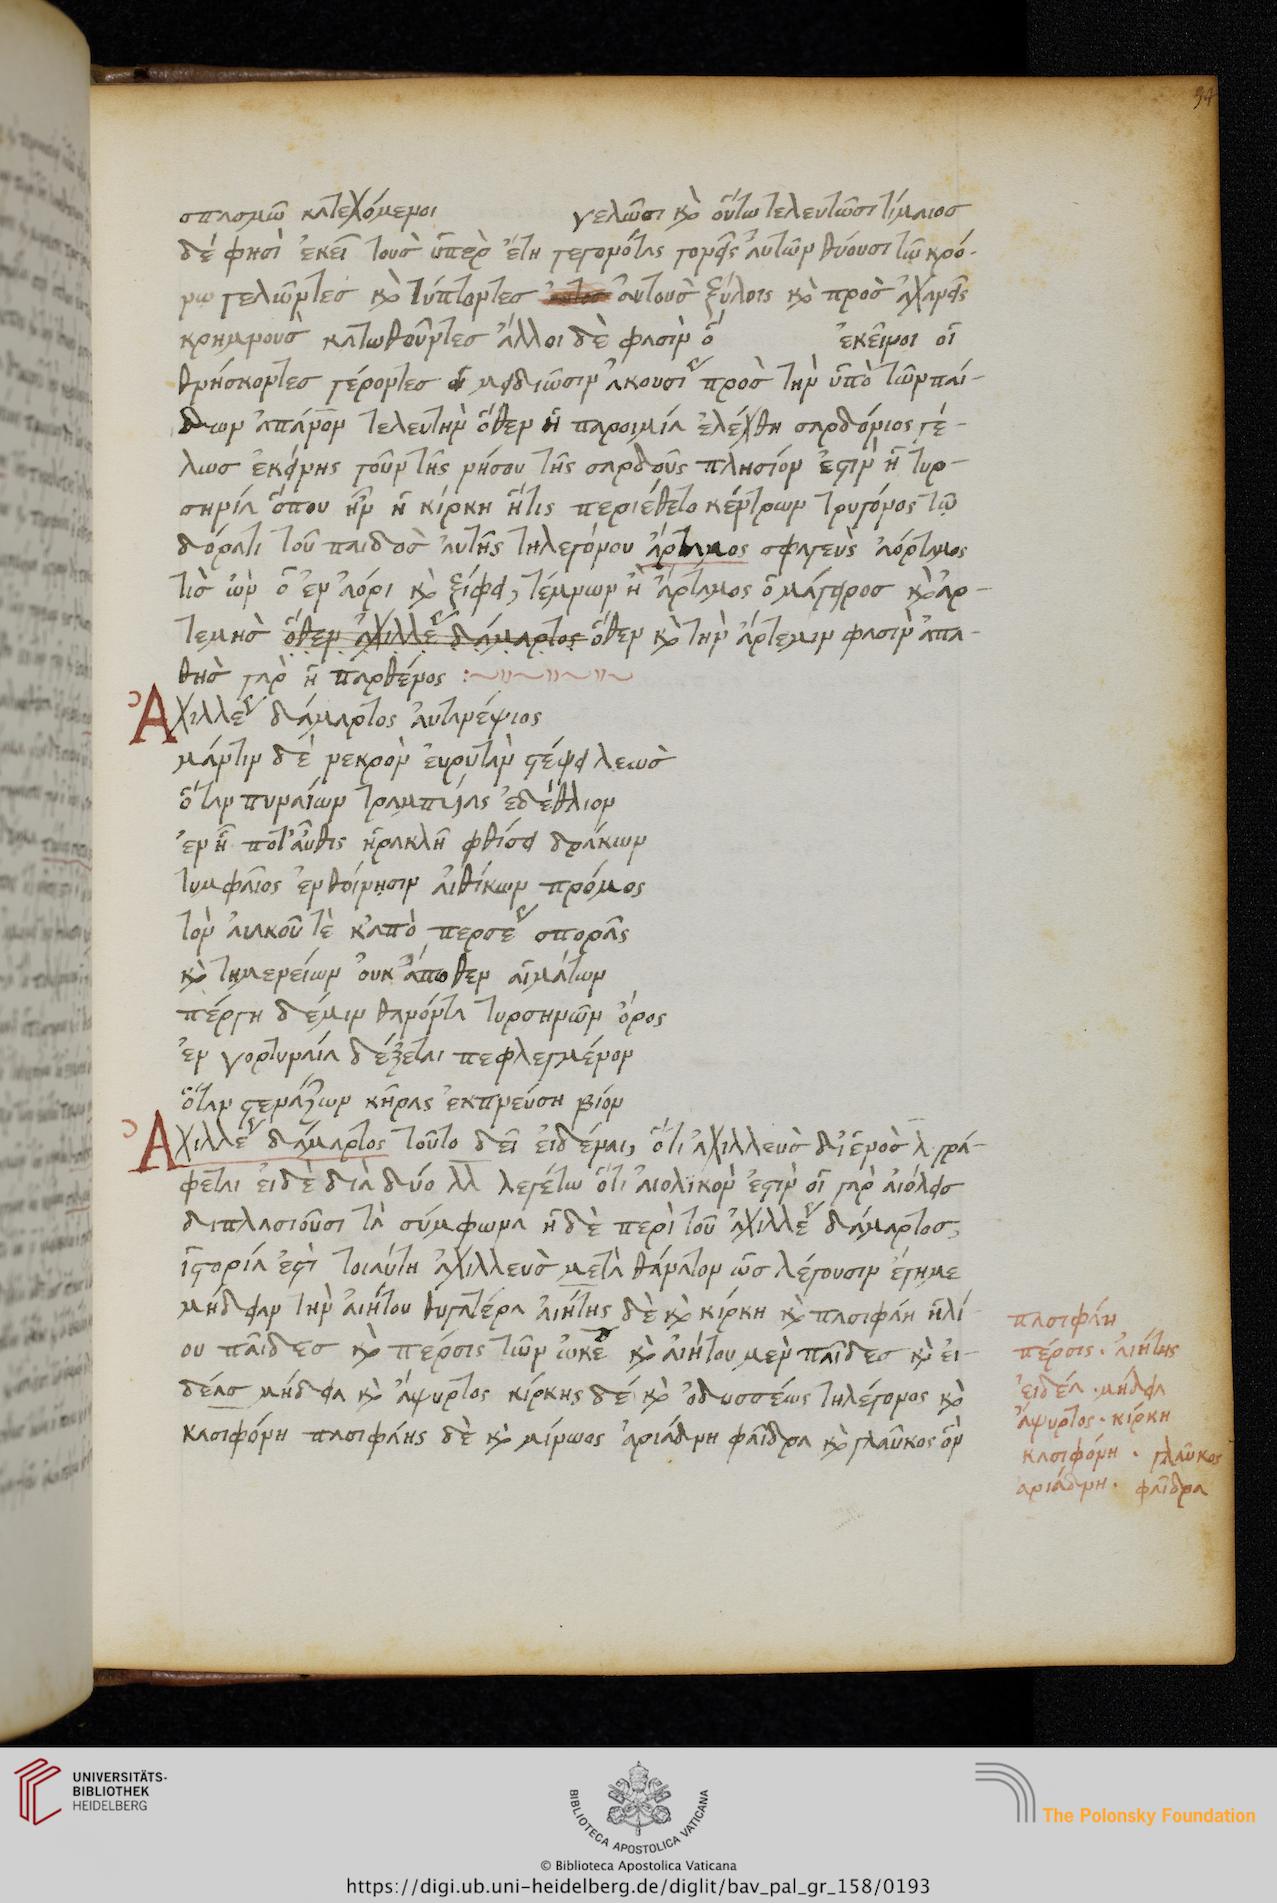 94
σπασμῶ κατεχόμενοι γελῶσι κὶ οὕτω τελευτῶσι τίμαιοσ
δέ φησὶ ἐκεῖ τουσ ὑπερ ἔτη γεγονότας γονεῖς αὐτῶν θύουσι τῷ κρό-
νω γελῶντεσ κὶ τύπτοντεσ αὐτουσ ξύλοις κὶ προσ ἀχανεῖς
κρημνουσ κατωθοῦντεσ ἄλλοι δὲ φασὶν ὅ ἐκεῖνοι οἱ
θνήσκοντεσ γέροντεσ εἰ μειδιῶσιν ἀκουσι προσ τὴν ὑπὸ τῶν παί-
δων ἀπάνον τελευτὴν ὅθεν ἡ παροιμία ἐλέχθη σαρδόνιος γέ-
λωσ ἐκείνης γοῦν τῆς νήσου τῆς σαρδοῦς πλησίον ἐστὶν ἡ τυρ-
σηνία ὅπου ἦν ἡ κίρκη ἥτις περιέθετο κέντρων τρυγόνος τῷ
δόρατι τοῦ παιδοσ αὐτῆς τηλεγόνου ἄρταμος σφαγεὺς ἀόρταμος
τὶσ ὢν ὁ ἐν ἀόρι κὶ ξίφει, τέμνων ἢ ἄρταμος ὁ μάγειροσ κὶ ἀρ-
τεμησ ὅθεν ἀχιλλέ δάμαρτος ὅθεν κὶ τὴν ἄρτεμιν φασὶν ἀπα-
θησ γαρ ἡ παρθένος :~
Ἀχιλλέ δάμαρτος αὐτανέψιος
μάντιν δέ νεκρὸν εὐρυτὰν στέψει λεωσ
ὅταν πυραίων τραμπύας ἐδέθλιον
ἐν ἧ ποτ' αὖθις ἡρακλῆ φθίσει δράκων
τυμφαῖος ἐνθοίνησιν αἰθίκων πρόμος
τὸν αἰακοῦ τὲ κἀπὸ περσέ σπορᾶς
κὶ τημενείων οὐκ ἄπωθεν αἱμάτων
πέργη δέμιν θανόντα τυρσηνῶν ὄρος
ἐν γορτυναία δέξεται πεφλεγμένον
ὅταν στενάζων κῆρας ἐκπνεύση βίον
Ἀχιλλέ δάμαρτος τοῦτο δεῖ εἰδέναι, ὅτι ἀχιλλευσ δι' ἑνοσ λ γρά-
φεται εἰ δὲ διὰ δύο λλ λεγέτω ὅτι αἰολϊκόν ἐστιν οἱ γαρ αἰόλεισ
διπλασιοῦσι τὰ σύμφωνα ἡ δὲ περὶ τοῦ ἀχιλλέ δάμαρτοσ,
ἱστορία ἐστὶ τοιαύτη ἀχιλλευσ μετὰ θάνατον ὡσ λέγουσιν ἔγημε
μήδειαν τὴν αἰήτου θυγατέρα αἰήτης δὲ κὶ κίρκη κὶ πασιφάη ἡλί
ου παῖδεσ κὶ πέρσις τῶν ὠκε κὶ αἰήτου μεν παῖδεσ κὶ εἰ-
δέασ μήδεια κὶ ἄψυρτος κίρκης δέ κὶ ὀδυσσέως τηλέγονος κὶ
κασιφόνη πασιφάης δὲ κὶ μίνωος ἀριάδνη φαῖδρα κὶ γλαῦκος ὃν
πασιφάη
πέρσις · αἰήτης
εἰδέα · μήδεια
ἄψυρτος · κίρκη
κασιφόνη · γλαῦκος
αριάδνη · φαῖδρα
UNIVERSITÄTS-
BIBLIOTHEK
HEIDELBERG
BIBLIOTECA APOSTOLICA VATICANA
The Polonsky Foundation
© Biblioteca Apostolica Vaticana
https://digi.ub.uni-heidelberg.de/diglit/bav_pal_gr_158/0193